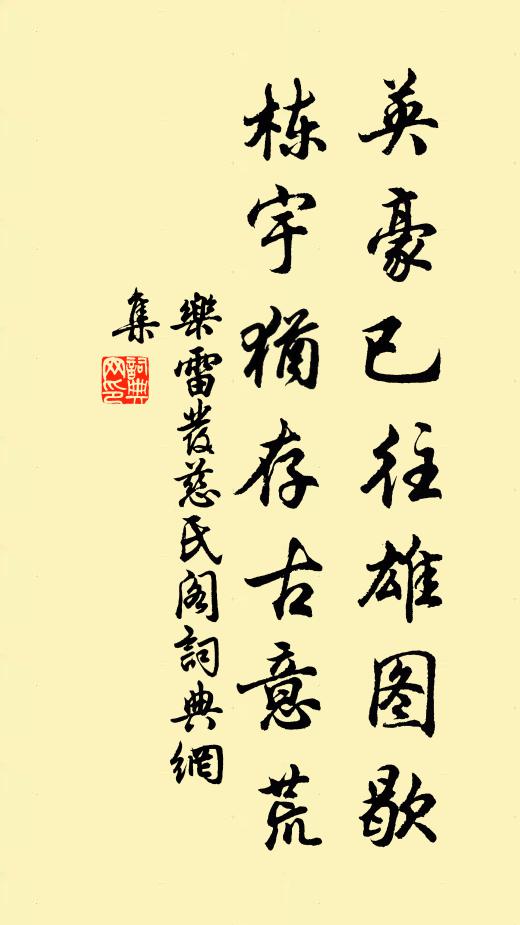 英豪已往雄图歇
栋宇猶存古意荒
樂雷發慈氏阁詞典網
集
詞典
网印